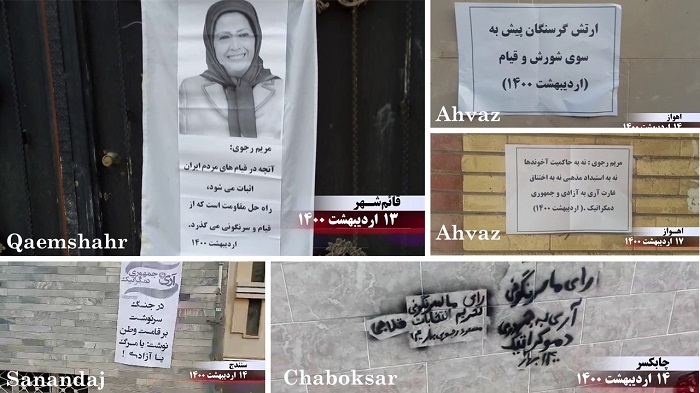 مریم رجوی:
آنچه در قیام های مردم ایران
اثبات می شود،
راه حل مقاومت است که از
قیام و سرنگونی می گذرد.
اردیبهشت ۱۴۰۰
قائم‌شهر
۱۳ اردیبهشت ۱۴۰۰
Qaemshahr
ارتش گرسنگان پیش به
سوی شورش و قیام
(اردیبهشت ۱۴۰۰)
Ahvaz
اهواز
۱۴ اردیبهشت ۱۴۰۰
مریم رجوی : نه به حاکمیت آخوندها
نه به استبداد مذهبی نه به اختناق
غارت آری به آزادی و جمهوری
دمکراتیک .(اردیبهشت ۱۴۰۰)
Ahvaz
اهواز
۱۷ اردیبهشت ۱۴۰۰
آری جمهوری
دمکراتیک
در جنگ
سرنوشت
بر قامت وطن
نوشت: یا مرگ
یا آزادی !
Sanandaj
سنندج
۱۴ اردیبهشت ۱۴۰۰
رای ما سرنگونی
تحریم انتخابات
قلابی
رای ما سرنگونی
آری به جمهوری
دموکراتیک
Chaboksar
چابکسر
۱۴ اردیبهشت ۱۴۰۰